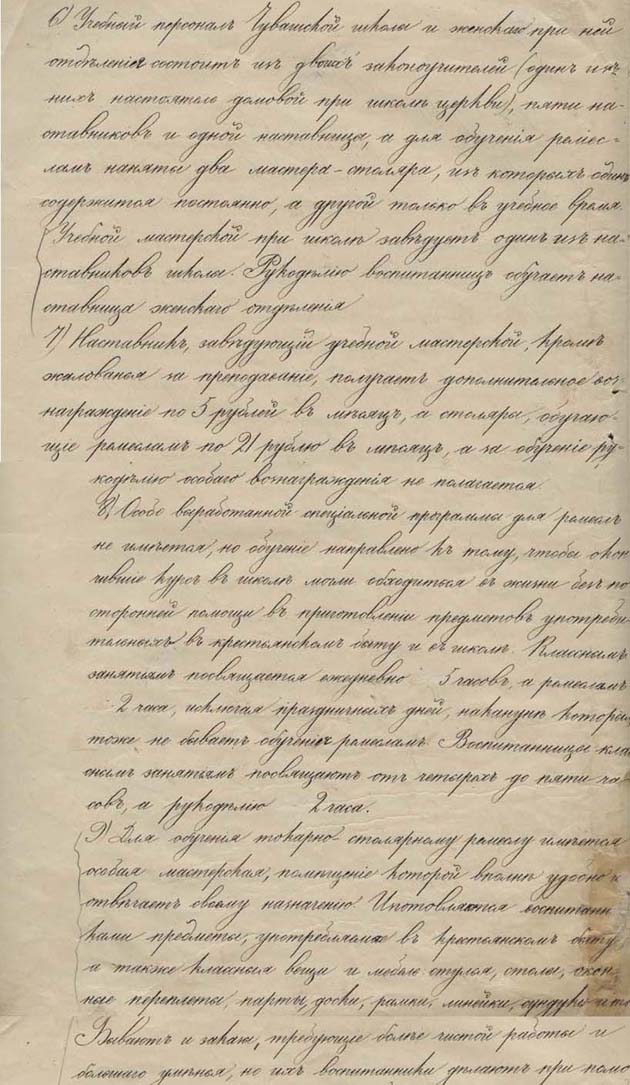 6) Учебный персоналъ Чувашской школы и женскаго при ней
отдѣленія состоитъ изъ двоихъ законоучителей (одинъ изъ
нихъ настоятель домовой при школѣ церкви), пяти на-
ставниковъ и одной наставницы, а для обученія ремес-
ламъ наняты два мастера-столяра, изъ которыхъ одинъ
содержится постоянно, а другой только въ учебное время.
Учебной мастерской при школѣ завѣдуетъ одинъ изъ на-
ставниковъ школы. Рукодѣлію воспитанницъ обучаетъ на-
ставница женскаго отдѣленія
7) Наставникъ, завѣдующій учебной мастерской, кромѣ
жалованья за преподаваніе, получаетъ дополнительное воз-
награжденіе по 5 рублей въ мѣсяцъ, а столяра, обучаю-
щіе ремесламъ по 21 рублю въ мѣсяцъ, а за обученіе ру-
кодѣлію особаго вознагражденія не полагается.
8) Особо выработанной спеціальной программы для ремеслъ
не имѣется, но обученіе направлено къ тому, чтобы окон
чившіе курсъ въ школѣ могли обходиться въ жизни безъ по
сторонней помощи въ приготовленіи предметовъ употреби-
тельныхъ въ крестьянскомъ быту и въ школѣ. Класснымъ
занятіямъ посвящается ежедневно 5 часовъ, а ремесламъ
2 часа, исключая праздничныхъ дней, наканунѣ которы
тоже не бываетъ обученія ремесламъ. Воспитанницы кла
снымъ занятіямъ посвящаютъ отъ четырехъ до пяти ча
совъ, а рукодѣлію 2 часа.
9) Для обученія токарно-столярному ремеслу имѣется
особая мастерская, помѣщеніе которой вполнѣ удобно и
отвѣчаетъ своему назначенію. Изготовляются воспитанн
ками предметы, употребляемые въ крестьянскомъ быту
а также классныя вещи и мебель: стулья, столы, окон-
ные переплеты, парты, доски, рамки, линейки, сундуки и т.
Бываютъ и заказы, требующіе болѣе чистой работы и
большаго умѣнья, но ихъ воспитанники дѣлаютъ при помо